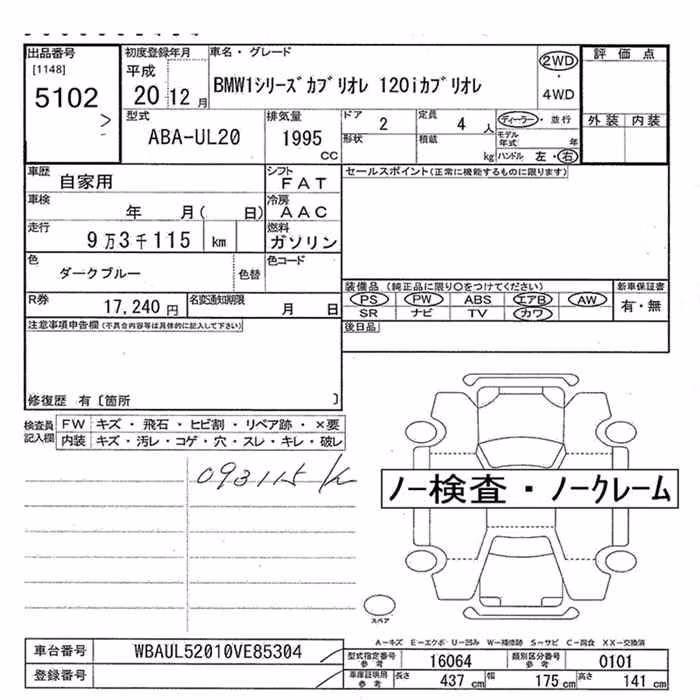 出品番号
[1148]
5102
初度登録年月
平成
20 12 月
車名・グレード
BMW1シリーズカブリオレ 120iカブリオレ
2WD
・
4WD
評価点
外装 内装
型式
ABA-UL20
排気量
1995
CC
ドア
2
定員
4 人
形状
積載
kg
ディーラー・並行
モデル年式
年
ハンドル 左・右
車歴
自家用
シフト
FAT
車検
年 月( 日)
冷房
AAC
走行
9万3千115 km
燃料
ガソリン
色
ダークブルー
色替
色コード
R券
17,240 円
名変通知期限
月 日
セールスポイント(正常に機能するものに限ります)
装備品 (純正品に限り○をつけてください)
PS PW ABS エアB AW
SR ナビ TV カワ
新車保証書
有・無
後日品
注意事項申告欄(不具合内容等は具体的に記入して下さい)
修復歴 有〔箇所 〕
検査員
記入欄
FW キズ・飛石・ヒビ割・リペア跡・×要
内装 キズ・汚レ・コゲ・穴・スレ・キレ・破レ
093115 K
ノー検査・ノークレーム
スペア
A-キズ E-エクボ U-凹み W-補修跡 S-サビ C-腐食 XX-交換済
車台番号
WBAUL52010VE85304
登録番号
型式指定番号
参考
16064
類別区分番号
参考
0101
車庫証明用
参考
長さ 437 cm 幅 175 cm 高さ 141 cm